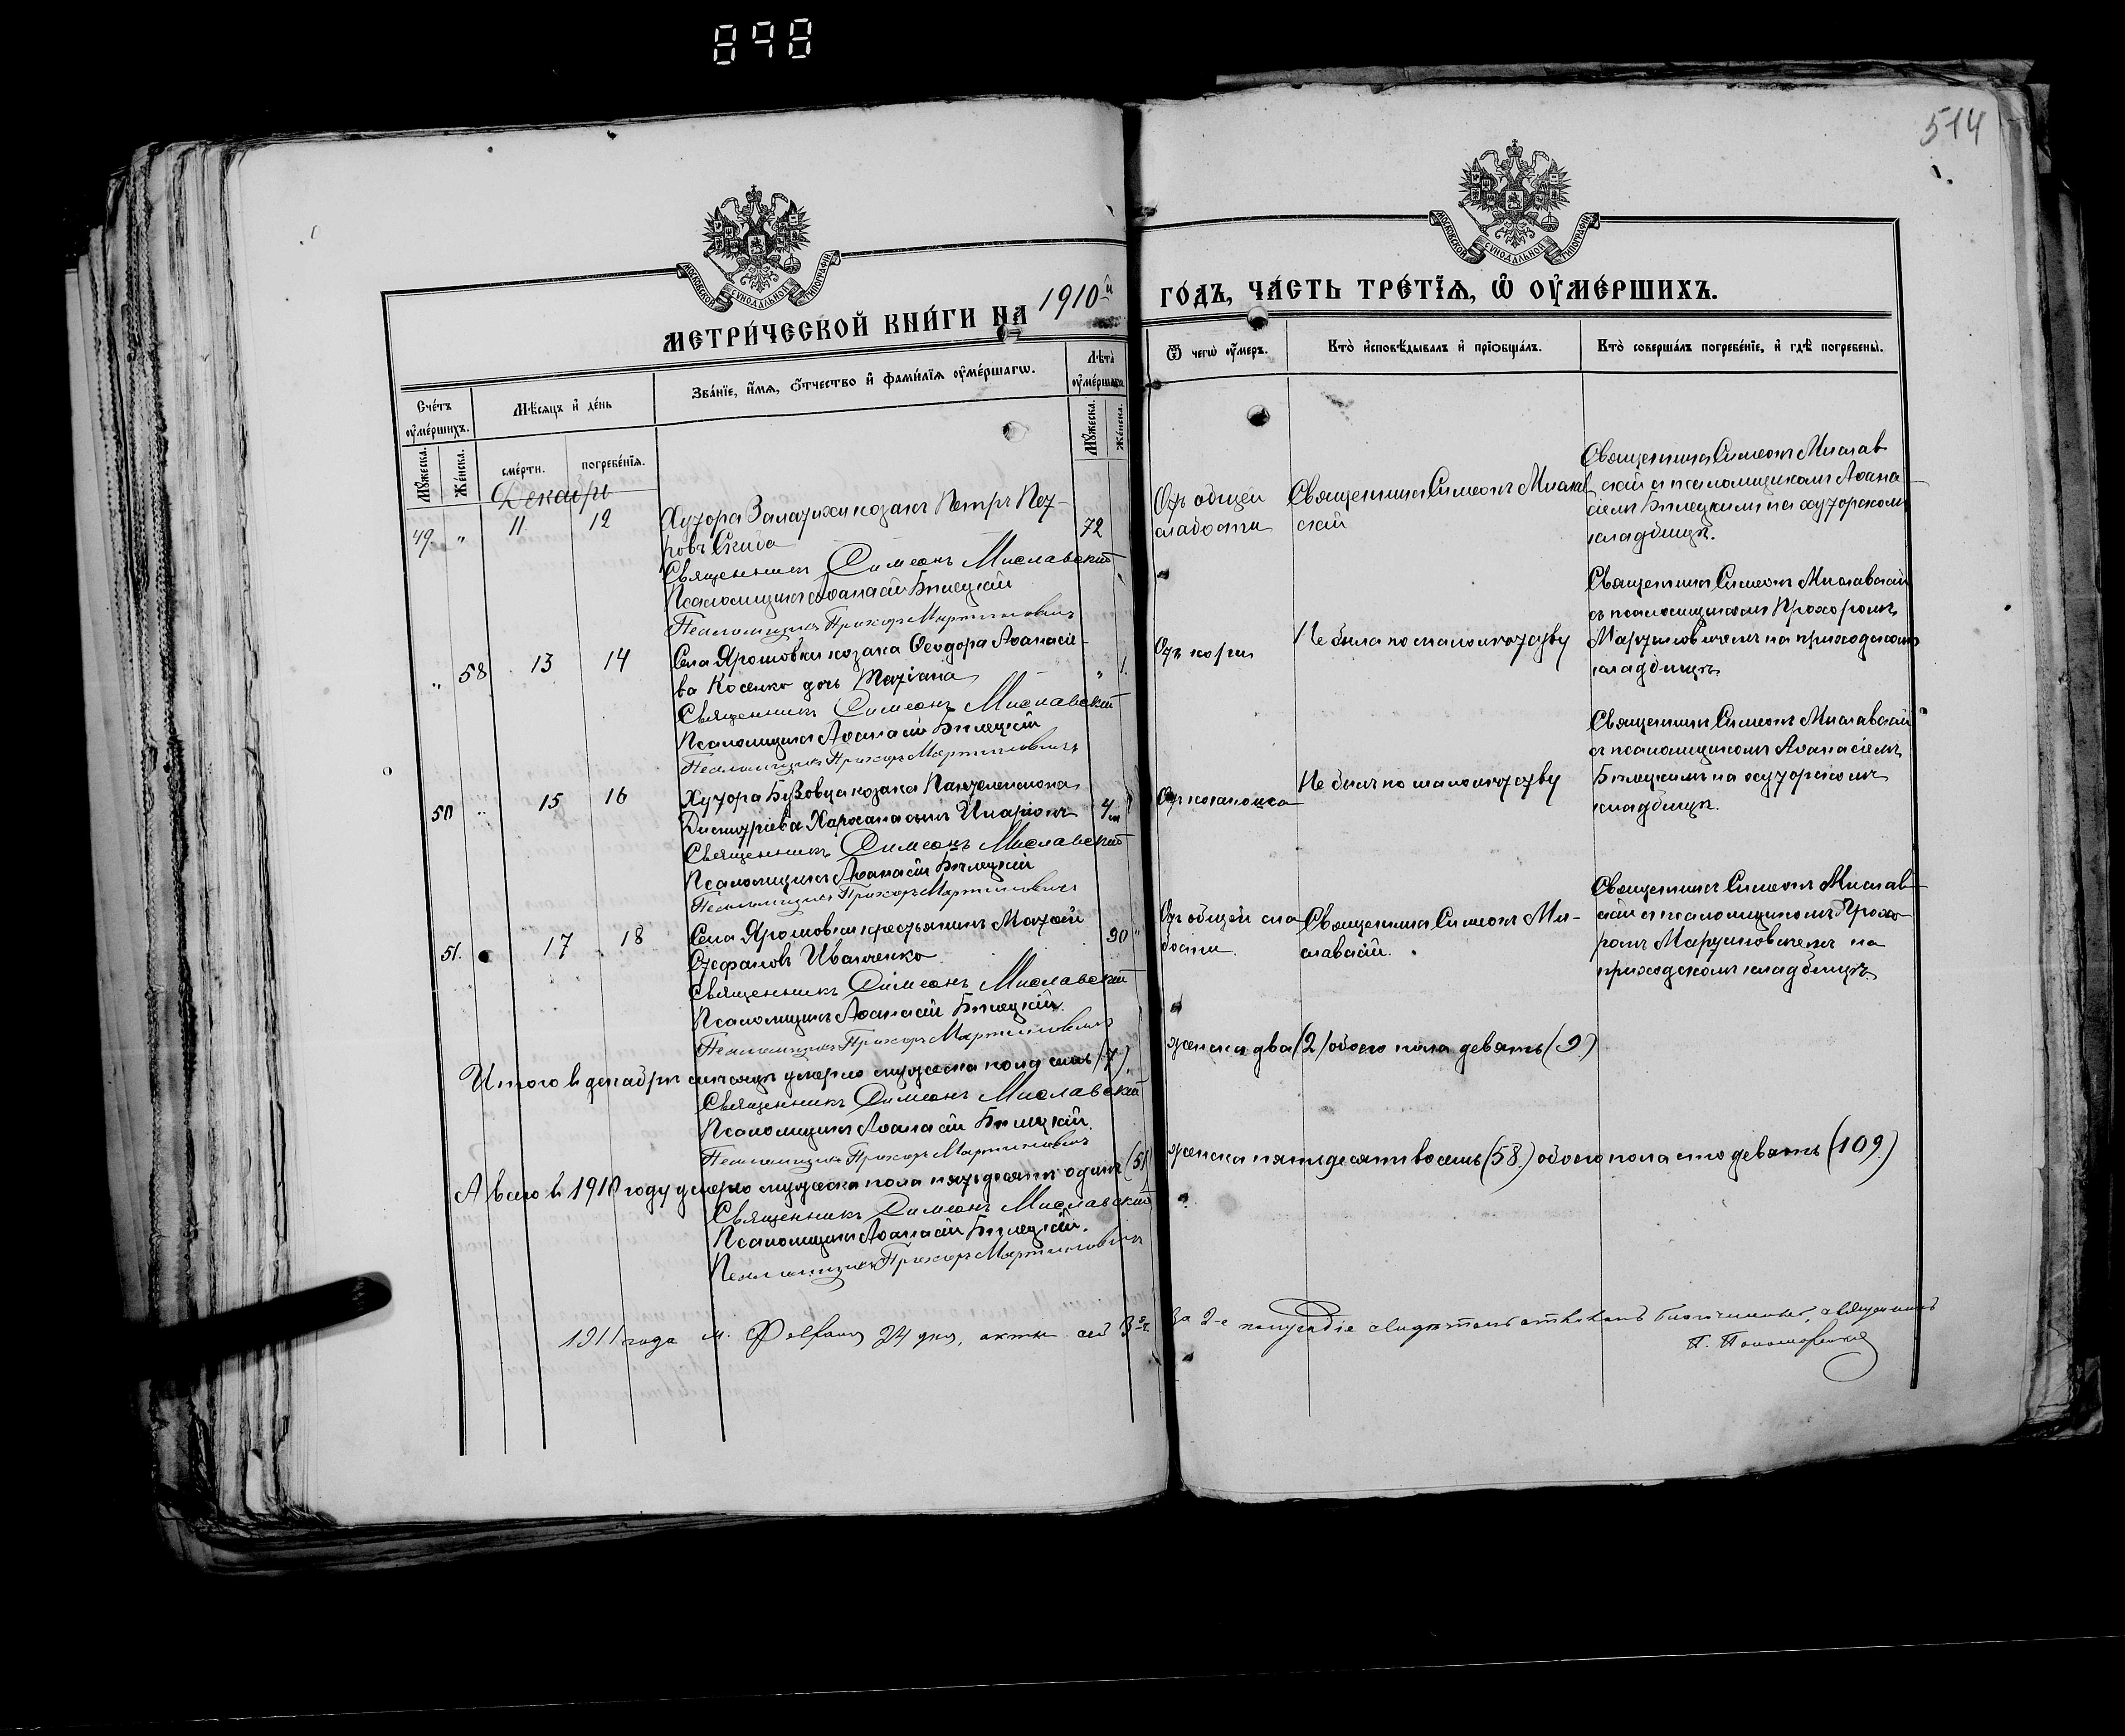 898
514
МОСКОВСКОЙ СУНОДАЛЬНОЙ ТИПОГРАФІИ
МОСКОВСКОЙ СУНОДАЛЬНОЙ ТИПОГРАФІИ
МЕТРИ́ЧЕСКОЙ КНИ́ГИ НА 1910й ГО́ДЪ, ЧА́СТЬ ТРЕ́ТЇѦ, Ѽ ОУ҆МЕ́РШИХЪ.
Сче́тъ оу҆ме́ршихъ.
Мꙋ́жеска.
Же́нска.
Мѣ́сѧцъ и҆ де́нь
сме́рти.
погребе́нїѧ.
Зва́нїе, и҆́мѧ, ѻ҆́тчество и҆ фамилїѧ оу҆ме́ршагѡ.
Лѣ́та оу҆ме́ршагѡ.
Мꙋ́жеска.
Же́нска.
Ѿ чегѡ̀ оу҆́меръ.
Кто̀ и҆сповѣ́дывалъ и҆ прїѡбща́лъ.
Кто̀ соверша́лъ погребе́нїе, и҆ гдѣ̀ погребены̀.
Декабрь
49 " 11 12
Хутора Залатихи козакъ Петръ Пет-
ровъ Скиба
72
Отъ общей
слабости
Священникъ Симеонъ Мислав
скій
Священникъ Симеонъ Мислав
скій съ псаломщикомъ Аѳана-
сіемъ Бѣлецкимъ на хуторскомъ
кладбищѣ.
Священникъ Симеонъ Миславскій
Псаломщикъ Аѳанасій Бѣлецкій
Псаломщикъ Прохоръ Мартиновичъ
" 58 13 14
Села Ярошовки козака Ѳеодора Аѳанасіе-
ва Косенко дочь Татіана
" 1.
Отъ кори
Не была по малолѣтству
Священникъ Симеонъ Миславскій
съ псаломщикомъ Прохоромъ
Мартиновичемъ на приходскомъ
кладбищѣ
Священникъ Симеонъ Миславскій
Псаломщикъ Аѳанасій Бѣлецкій
Псаломщикъ Прохоръ Мартиновичъ
50 " 15 16
Хутора Бузовца козака Пантелеимона
Димитріева Харлана сынъ Иларіонъ
4
Отъ коклюша
Не былъ по малолѣтству
Священникъ Симеонъ Миславскій
съ псаломщикомъ Аѳанасіемъ
Бѣлецкимъ на хуторскомъ
кладбищѣ.
Священникъ Симеонъ Миславскій
Псаломщикъ Аѳанасій Бѣлецкій
Псаломщикъ Прохоръ Мартиновичъ
51. 17 18
Села Ярошовки крестьянинъ Матѳей
Стефановъ Иванченко
90 "
Отъ общей сла
бости.
Священникъ Симеонъ Ми-
славскій.
Священникъ Симеонъ Мислав-
скій съ псаломщикомъ Прохо-
ромъ Мартиновичемъ на
приходскомъ кладбищѣ
Священникъ Симеонъ Миславскій
Псаломщикъ Аѳанасій Бѣлецкій.
Псаломщикъ Прохоръ Мартиновичъ
Итого в декабрѣ мѣсяцѣ умерло мужеска пола семь (7) женска два (2) обоего пола девять (9.)
Священникъ Симеонъ Миславскій
Псаломщикъ Аѳанасій Бѣлецкій.
Псаломщикъ Прохоръ Мартиновичъ
А всего в 1910 году умерло мужеска пола пятьдесятъ одинъ (51) женска пятидесятъ восемь (58.) обоего пола сто девять (109.)
Священникъ Симеонъ Миславскій
Псаломщикъ Аѳанасій Бѣлецкій.
Псаломщикъ Прохоръ Мартиновичъ
1911 года м. Февраля 24 дня, акты сей 3й ч. за 2-е полугодіе свидѣтельствовалъ Благочинный, священникъ
П. Пономаренко